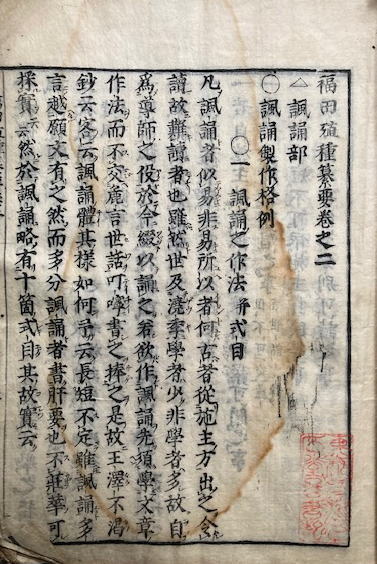 福田殖種纂要卷之二
△ 諷誦部
〇 諷誦製作格例
〇一 諷誦之作法 并 式目
凡諷誦者似易非易所以者何古者從施主方出之令
讀故難讀者也雖然世及澆季學者少非學者多故自
爲導師之役於令綴以誦之若欲作諷誦先須學文章
作法而不交危言世話叮嚀書之捧之是故王澤不渇
鈔云客云諷誦體其樣如何予云長短不定雖諷誦多
言越願文有之然而多分諷誦者書肝要也不莊華可
採實云然於諷誦略有十箇式目其故實云